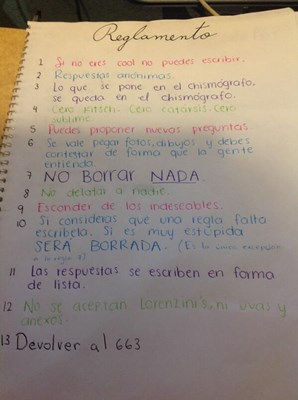 Reglamento
1 Si no eres cool no puedes escribir.
2 Respuestas anónimas.
3 Lo que se pone en el chismógrafo,
se queda en el chismógrafo.
4 Cero Kitsch. Cero catársis. Cero
sublime.
5 Puedes proponer nuevas preguntas.
6 Se vale pegar fotos, dibujos y debes
contestar de forma que la gente
entienda.
7 NO BORRAR NADA.
8 No delatar a nadie.
9 Esconder de los indeseables.
10 Si consideras que una regla falta
escríbela. Si es muy estúpida
SERÁ BORRADA. (Es la única excepción
a la regla 7)
11 Las respuestas se escriben en forma
de lista.
12 No se aceptan Lorenzini's, ni uvas y
anexos.
13 Devolver al 663